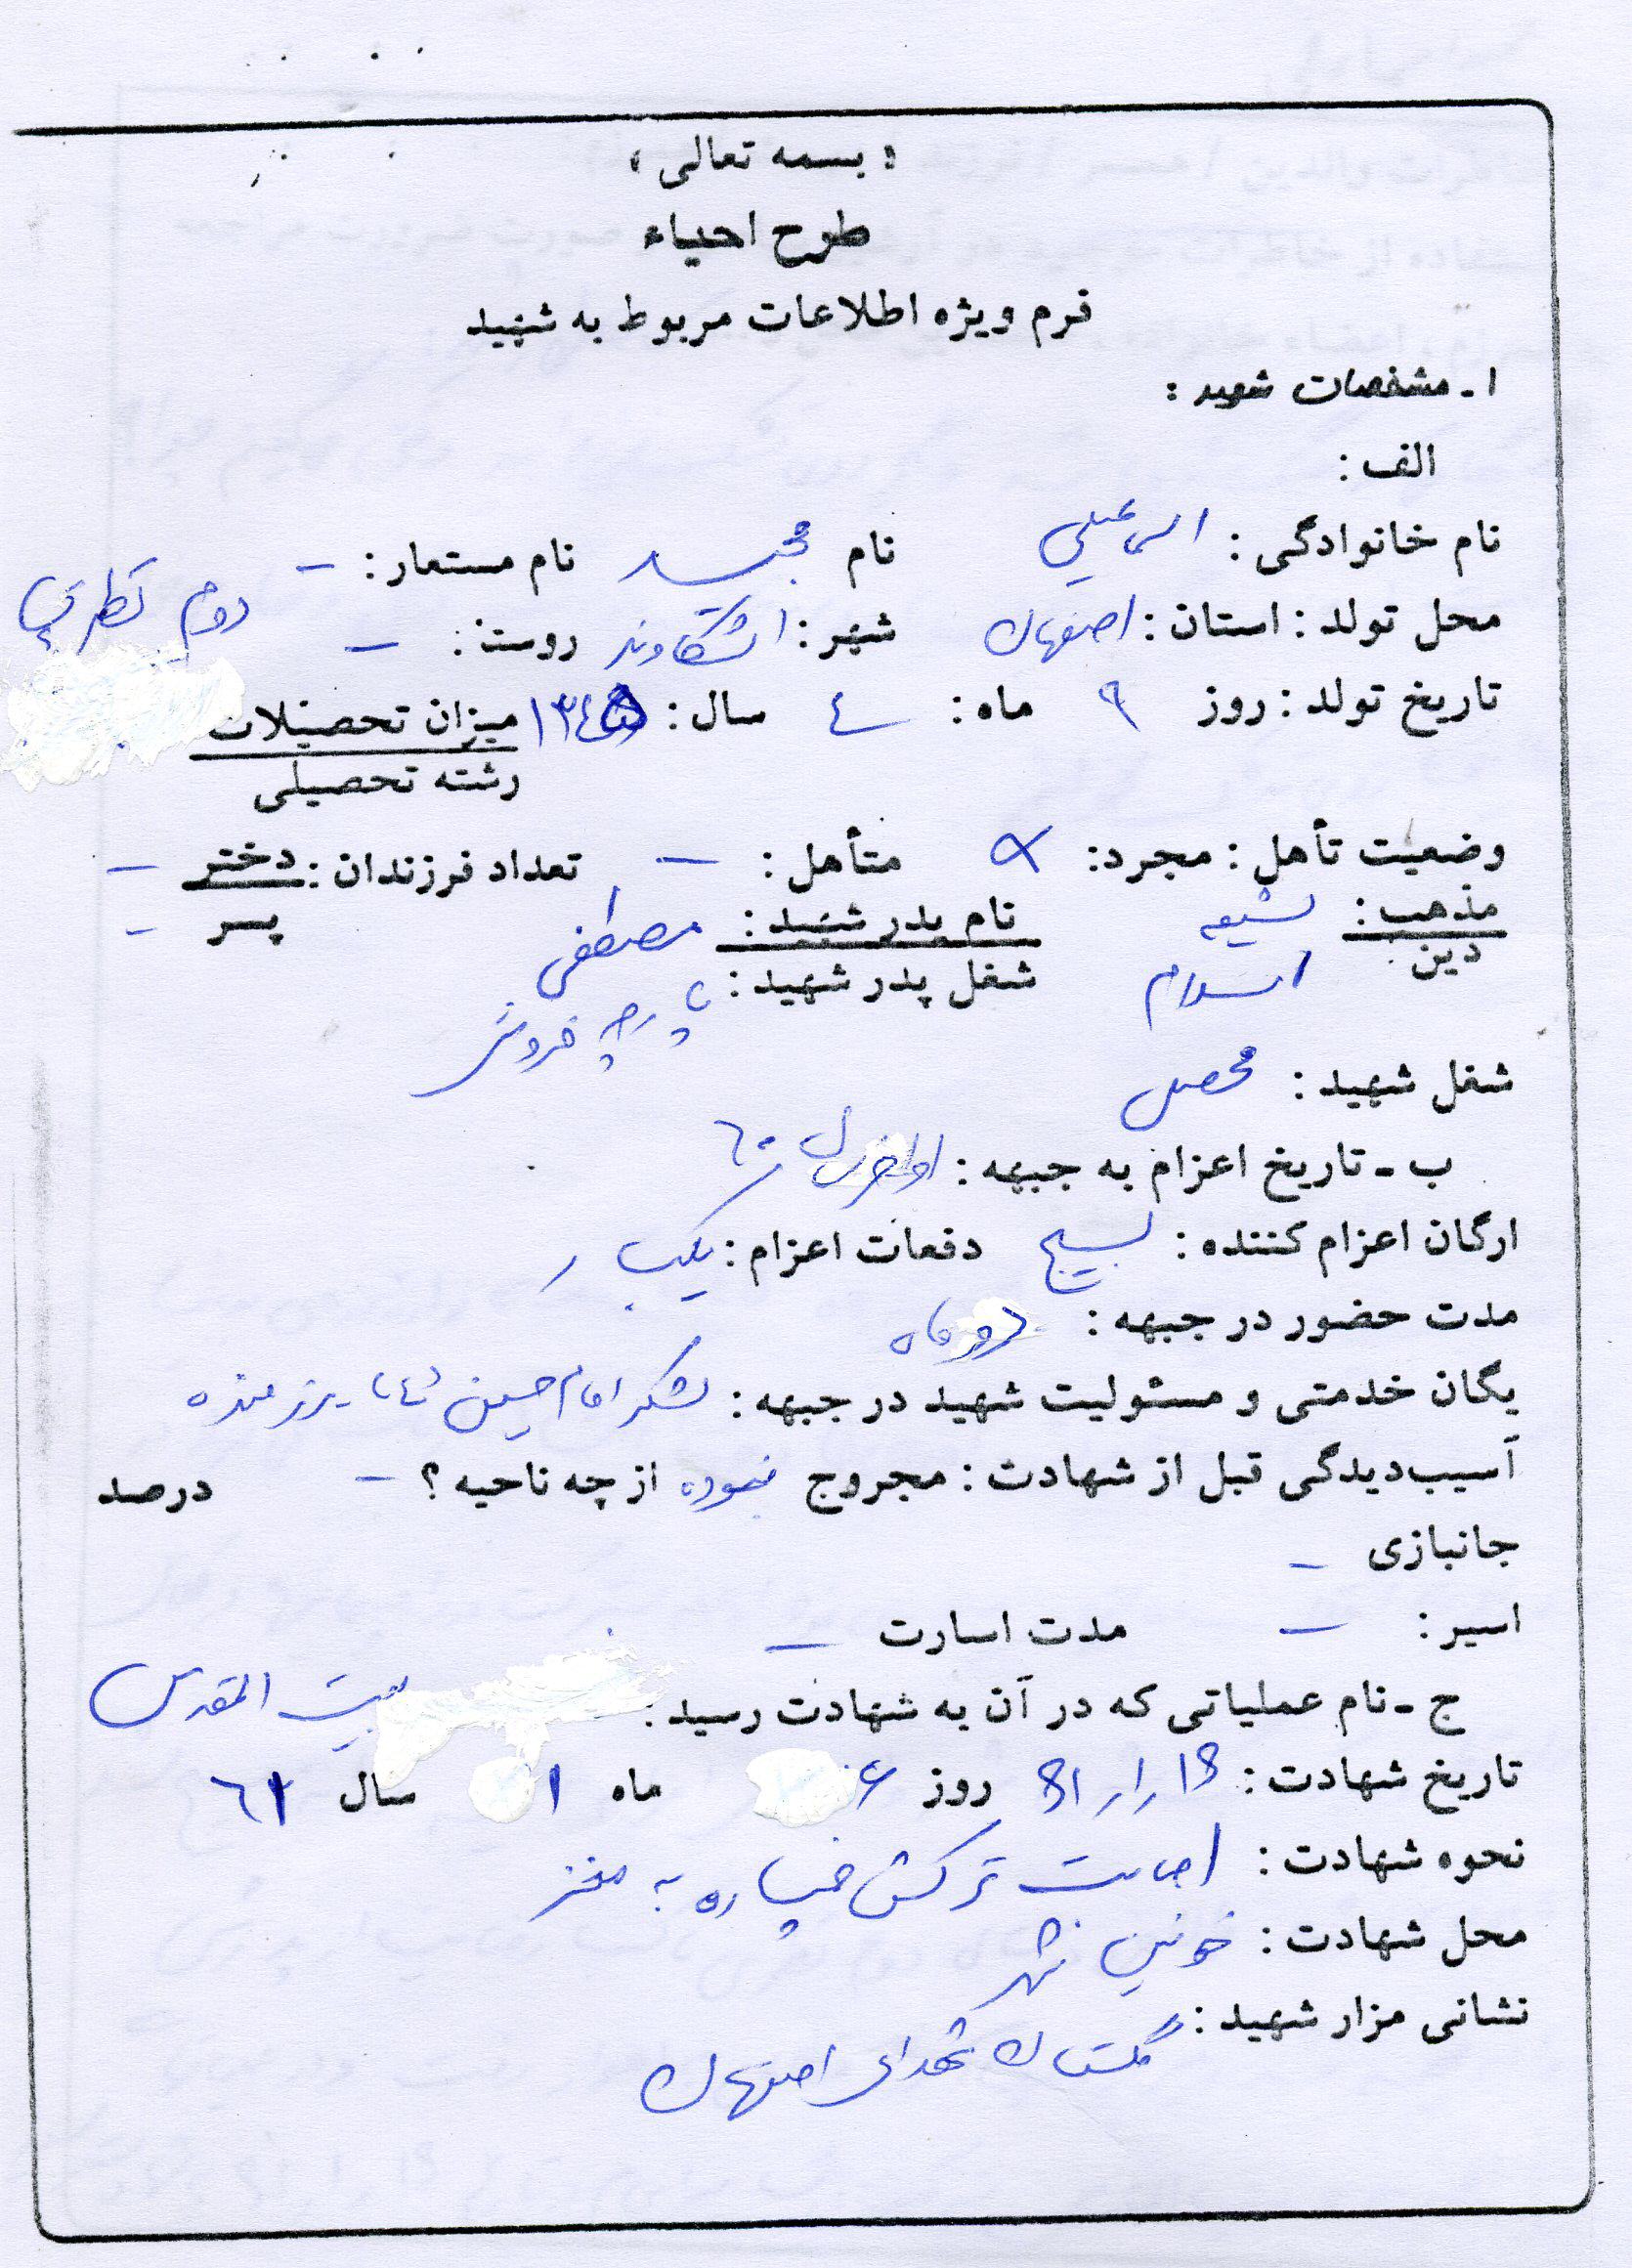 « بسمه تعالی »
طرح احیاء
فرم ویژه اطلاعات مربوط به شهید
۱ـ مشخصات شهید :
الف :
نام خانوادگی : اسماعیلی نام مجید نام مستعار : –
محل تولد : استان : اصفهان شهر : اشکاوند روستا : – دوم نظری
تاریخ تولد : روز ۹ ماه : ٤ سال : میزان تحصیلات
رشته تحصیلی
وضعیت تأهل : مجرد : × متأهل : – تعداد فرزندان : دختر –
مذهب : شیعه نام پدر شهید : مصطفی پسر –
دین اسلام شغل پدر شهید : پارچه فروش
شغل شهید : محصل
ب ـ تاریخ اعزام به جبهه : ٦۰
ارگان اعزام کننده : بسیج دفعات اعزام : یکبار
مدت حضور در جبهه : دو ماه
یگان خدمتی و مسئولیت شهید در جبهه : لشکر امام حسین (ع) رزمنده
آسیب‌دیدگی قبل از شهادت : مجروح نبوده از چه ناحیه ؟ – درصد
جانبازی –
اسیر : – مدت اسارت –
ج ـ نام عملیاتی که در آن به شهادت رسید : بیت المقدس
تاریخ شهادت : روز ماه ۱ سال ٦۱
نحوه شهادت : اصابت ترکش خمپاره به مغز
محل شهادت : خونین شهر
نشانی مزار شهید : گلستان شهدای اصفهان